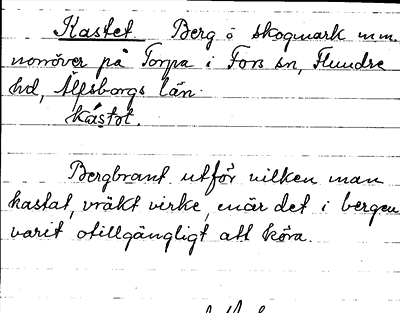 Kastet. Berg o skogmark m.m.
norröver på Torpa i Fors sn, Flundre
hd, Älfsborgs län.
kástət.
Bergbrant utför vilken man
kastat, vräkt virke, enär det i bergen
varit otillgängligt att köra.